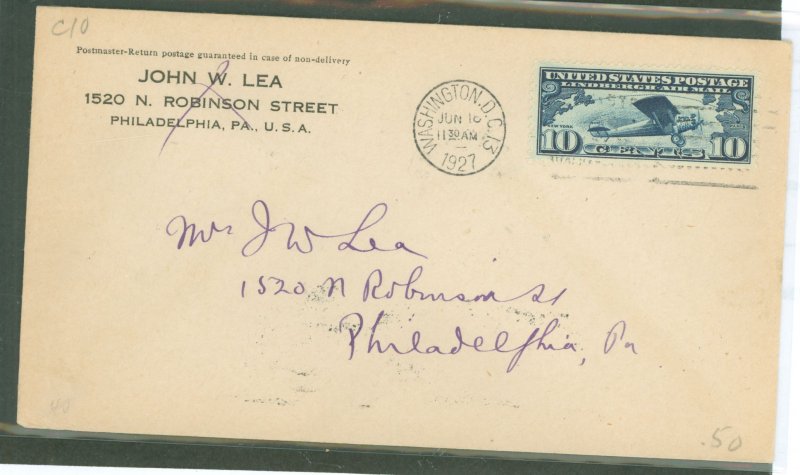 C10
Postmaster-Return postage guaranteed in case of non-delivery
JOHN W. LEA
1520 N. ROBINSON STREET
PHILADELPHIA, PA., U. S. A.
WASHINGTON, D.C. 13
JUN 18
11 30 AM
1927
UNITED STATES POSTAGE
LINDBERGH AIR MAIL
NEW YORK
10 CENTS 10
Mr J W Lea
1520 N Robinson St
Philadelphia, Pa
.50